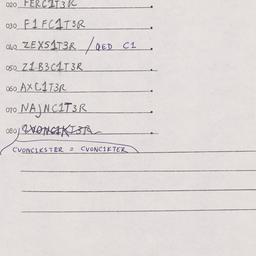 020 FERC1T3R
030 F1FC1T3R
040 ZEXS1T3R / QED C1
050 Z1B3C1T3R
060 AXC1T3R
070 NAJNC1T3R
080 CVONC1KT3R
CVONC1KSTER = CVONC1KTER